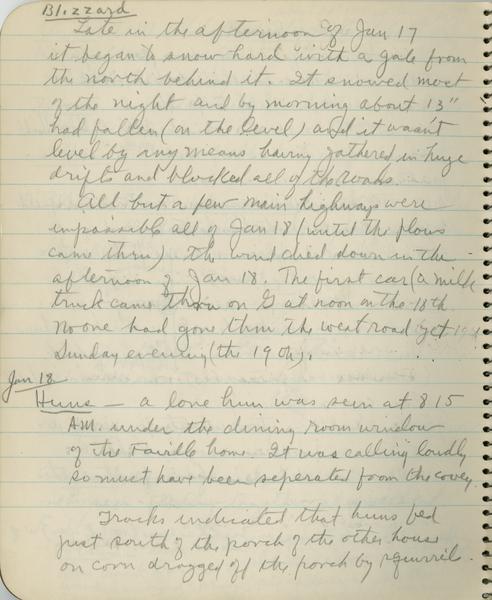 Blizzard
Late in the afternoon of Jan 17
it began to snow hard with a gale from
the north behind it. It snowed most
of the night and by morning about 13"
had fallen (on the level) and it wasn't
level by any means having gathered in huge
drifts and blocked all of the roads.
All but a few main highways were
impassible all of Jan 18 (until the plows
came thru) the wind died down in the
afternoon of Jan 18. The first car (a milk
truck came thru on G at noon on the 18th
No one had gone thru the west road yet
Sunday evening (the 19th).
Jan 18
Huns - a lone hun was seen at 8 15
A.M. under the dining room window
of the Faville home. It was calling loudly
so must have been seperated from the covey.
Tracks indicated that huns fed
just south of the porch of the other house
on corn dragged off the porch by squirrels.